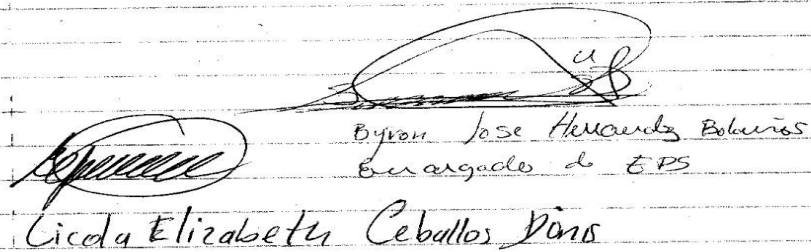 Byron Jose Hernandez Bolaños
Encargado de EPS
Elizabeth Ceballos